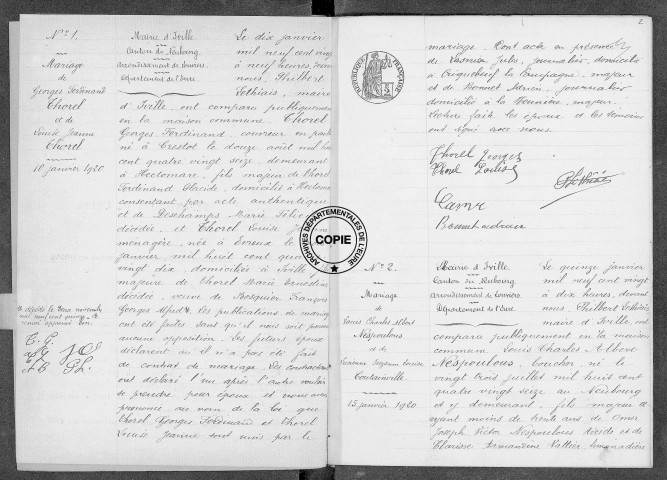 Nº 1.
Mariage
de
Georges Ferdinand
Thorel
et de
Louise Jeanne
Thorel
10 janvier 1920
Mairie d'Iville
Canton du Neubourg
Arrondissement de Louviers
Département de l'Eure
Le dix janvier
mil neuf cent vingt
à neuf heures, devant
nous, Philbert
Lethiais, maire
d'Iville, ont comparu publiquement
en la maison commune Thorel
Georges Ferdinand, couvreur en paille
né à Crestot le douze août mil huit
cent quatre vingt seize, demeurant
à Hectomare, fils majeur de Thorel
Ferdinand Placide, domicilié à Hectomare
consentant par acte authentique
et de Deschamps Marie
décédée, et Thorel Louise
ménagère, née à Evreux le
janvier, mil huit cent quatre
vingt dix, domiciliée à Iville
majeure de Thorel Marie Ernestine
décédée, veuve de Bosquier François
Georges Alfred. Les publications de mariage
ont été faites sans qu'il soit
aucune opposition. Les futurs époux
déclarent qu'il n'a pas été fait
de contrat de mariage. Les contractants
ont déclaré l'un après l'autre vouloir
se prendre pour époux et nous avons
prononcé au nom de la loi que
Thorel Georges Ferdinand et Thorel
Louise Jeanne sont unis par le
décédé le novembre
mil neuf cent quinze
renvoi approuvé bon.
2
mariage. Dont acte en présence
de Jules, journalier, domicilié
à Criquebeuf la Campagne, majeur
et de Bonnet Adrien, journalier
domicilié à la majeur.
Lecture faite les époux et les témoins
ont signé avec nous.
Thorel Georges
Thorel Louise
RÉPUBLIQUE FRANÇAISE
ARCHIVES DÉPARTEMENTALES DE L'EURE
COPIE
Nº 2.
Mariage
de
Louis Charles Albert
Nespoulous
et de
Suzanne
15 janvier 1920
Mairie d'Iville
Canton du Neubourg
Arrondissement de Louviers
Département de l'Eure
Le quinze janvier
mil neuf cent vingt
à dix heures, devant
nous, Philbert Lethiais
maire d'Iville, ont
comparu publiquement en la maison
commune Louis Charles Albert
Nespoulous, boucher, né le
vingt trois juillet mil huit cent
quatre vingt seize au Neubourg
et y demeurant, fils majeur
ayant moins de trente ans de Omer
Joseph Victor Nespoulous décédé et de
Clarisse Armandine Vallée, limonadière